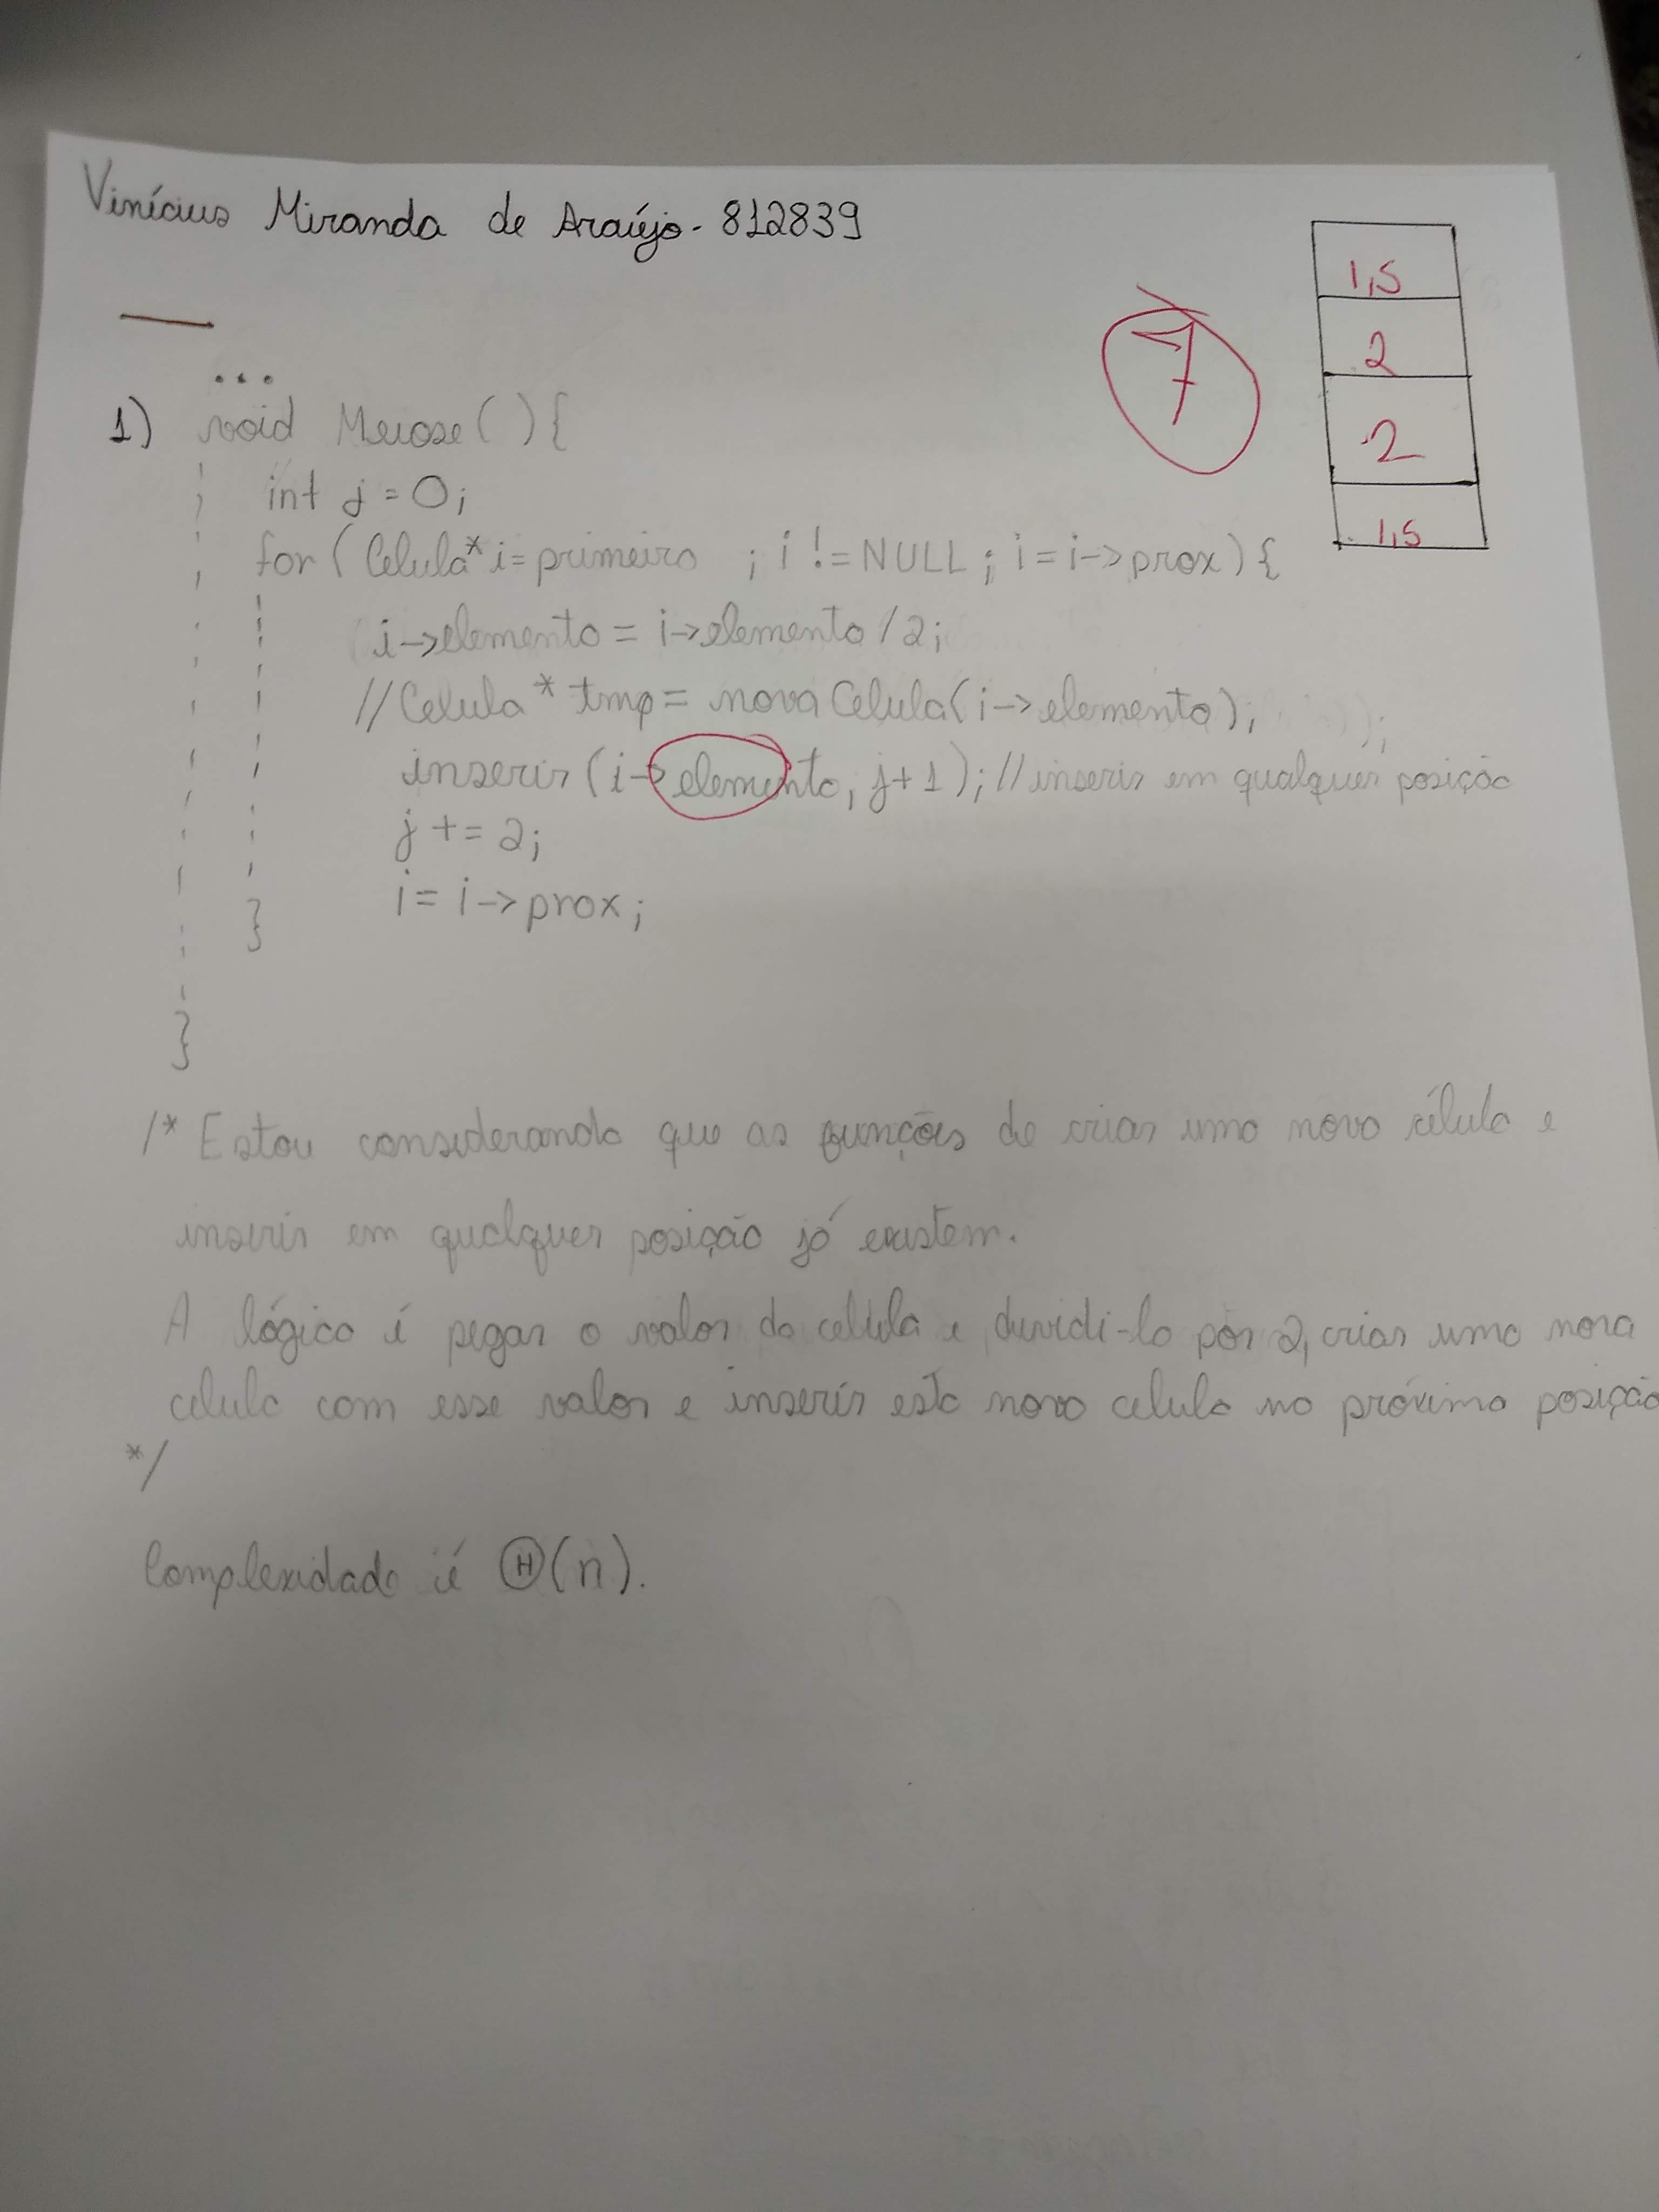 Vinícius Miranda de Araújo - 812839
1,5
2
2
1,5
7
...
1) void Meiose(){
int j = 0;
for (Celula* i = primeiro ; i != NULL ; i = i->prox) {
i->elemento = i->elemento / 2;
// Celula* tmp = novaCelula(i->elemento);
inserir (i->elemento, j+1); // inserir em qualquer posição
j += 2;
i = i->prox;
}
}
/* Estou considerando que as funções de criar uma nova célula e
inserir em qualquer posição já existem.
A lógica é pegar o valor da celula e dividi-lo por 2, criar uma nova
celula com esse valor e inserir esta nova celula na próxima posição
*/
Complexidade é Θ(n).